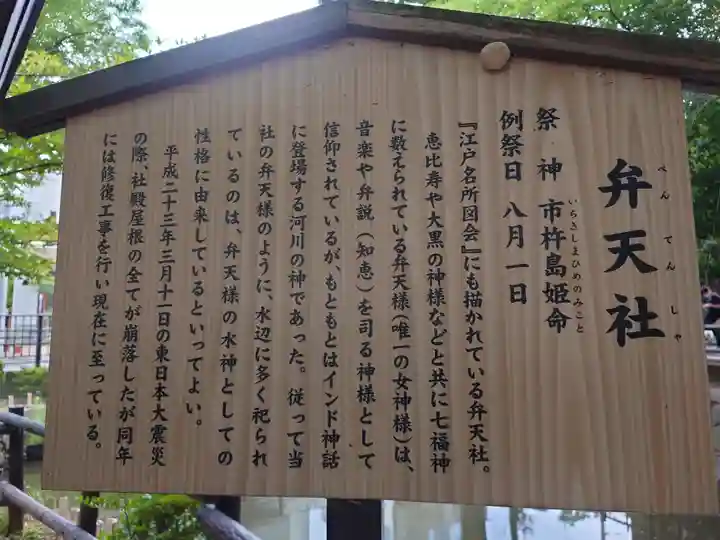 弁天社
べんてんしゃ
祭 神 市杵島姫命
いちきしまひめのみこと
例祭日 八月一日
『江戸名所図会』にも描かれている弁天社。
恵比寿や大黒の神様などと共に七福神
に数えられている弁天様(唯一の女神様)は、
音楽や弁説（知恵）を司る神様として
信仰されているが、もともとはインド神話
に登場する河川の神であった。従って当
社の弁天様のように、水辺に多く祀られ
ているのは、弁天様の水神としての
性格に由来しているといってよい。
平成二十三年三月十一日の東日本大震災
の際、社殿屋根の全てが崩落したが同年
には修復工事を行い現在に至っている。